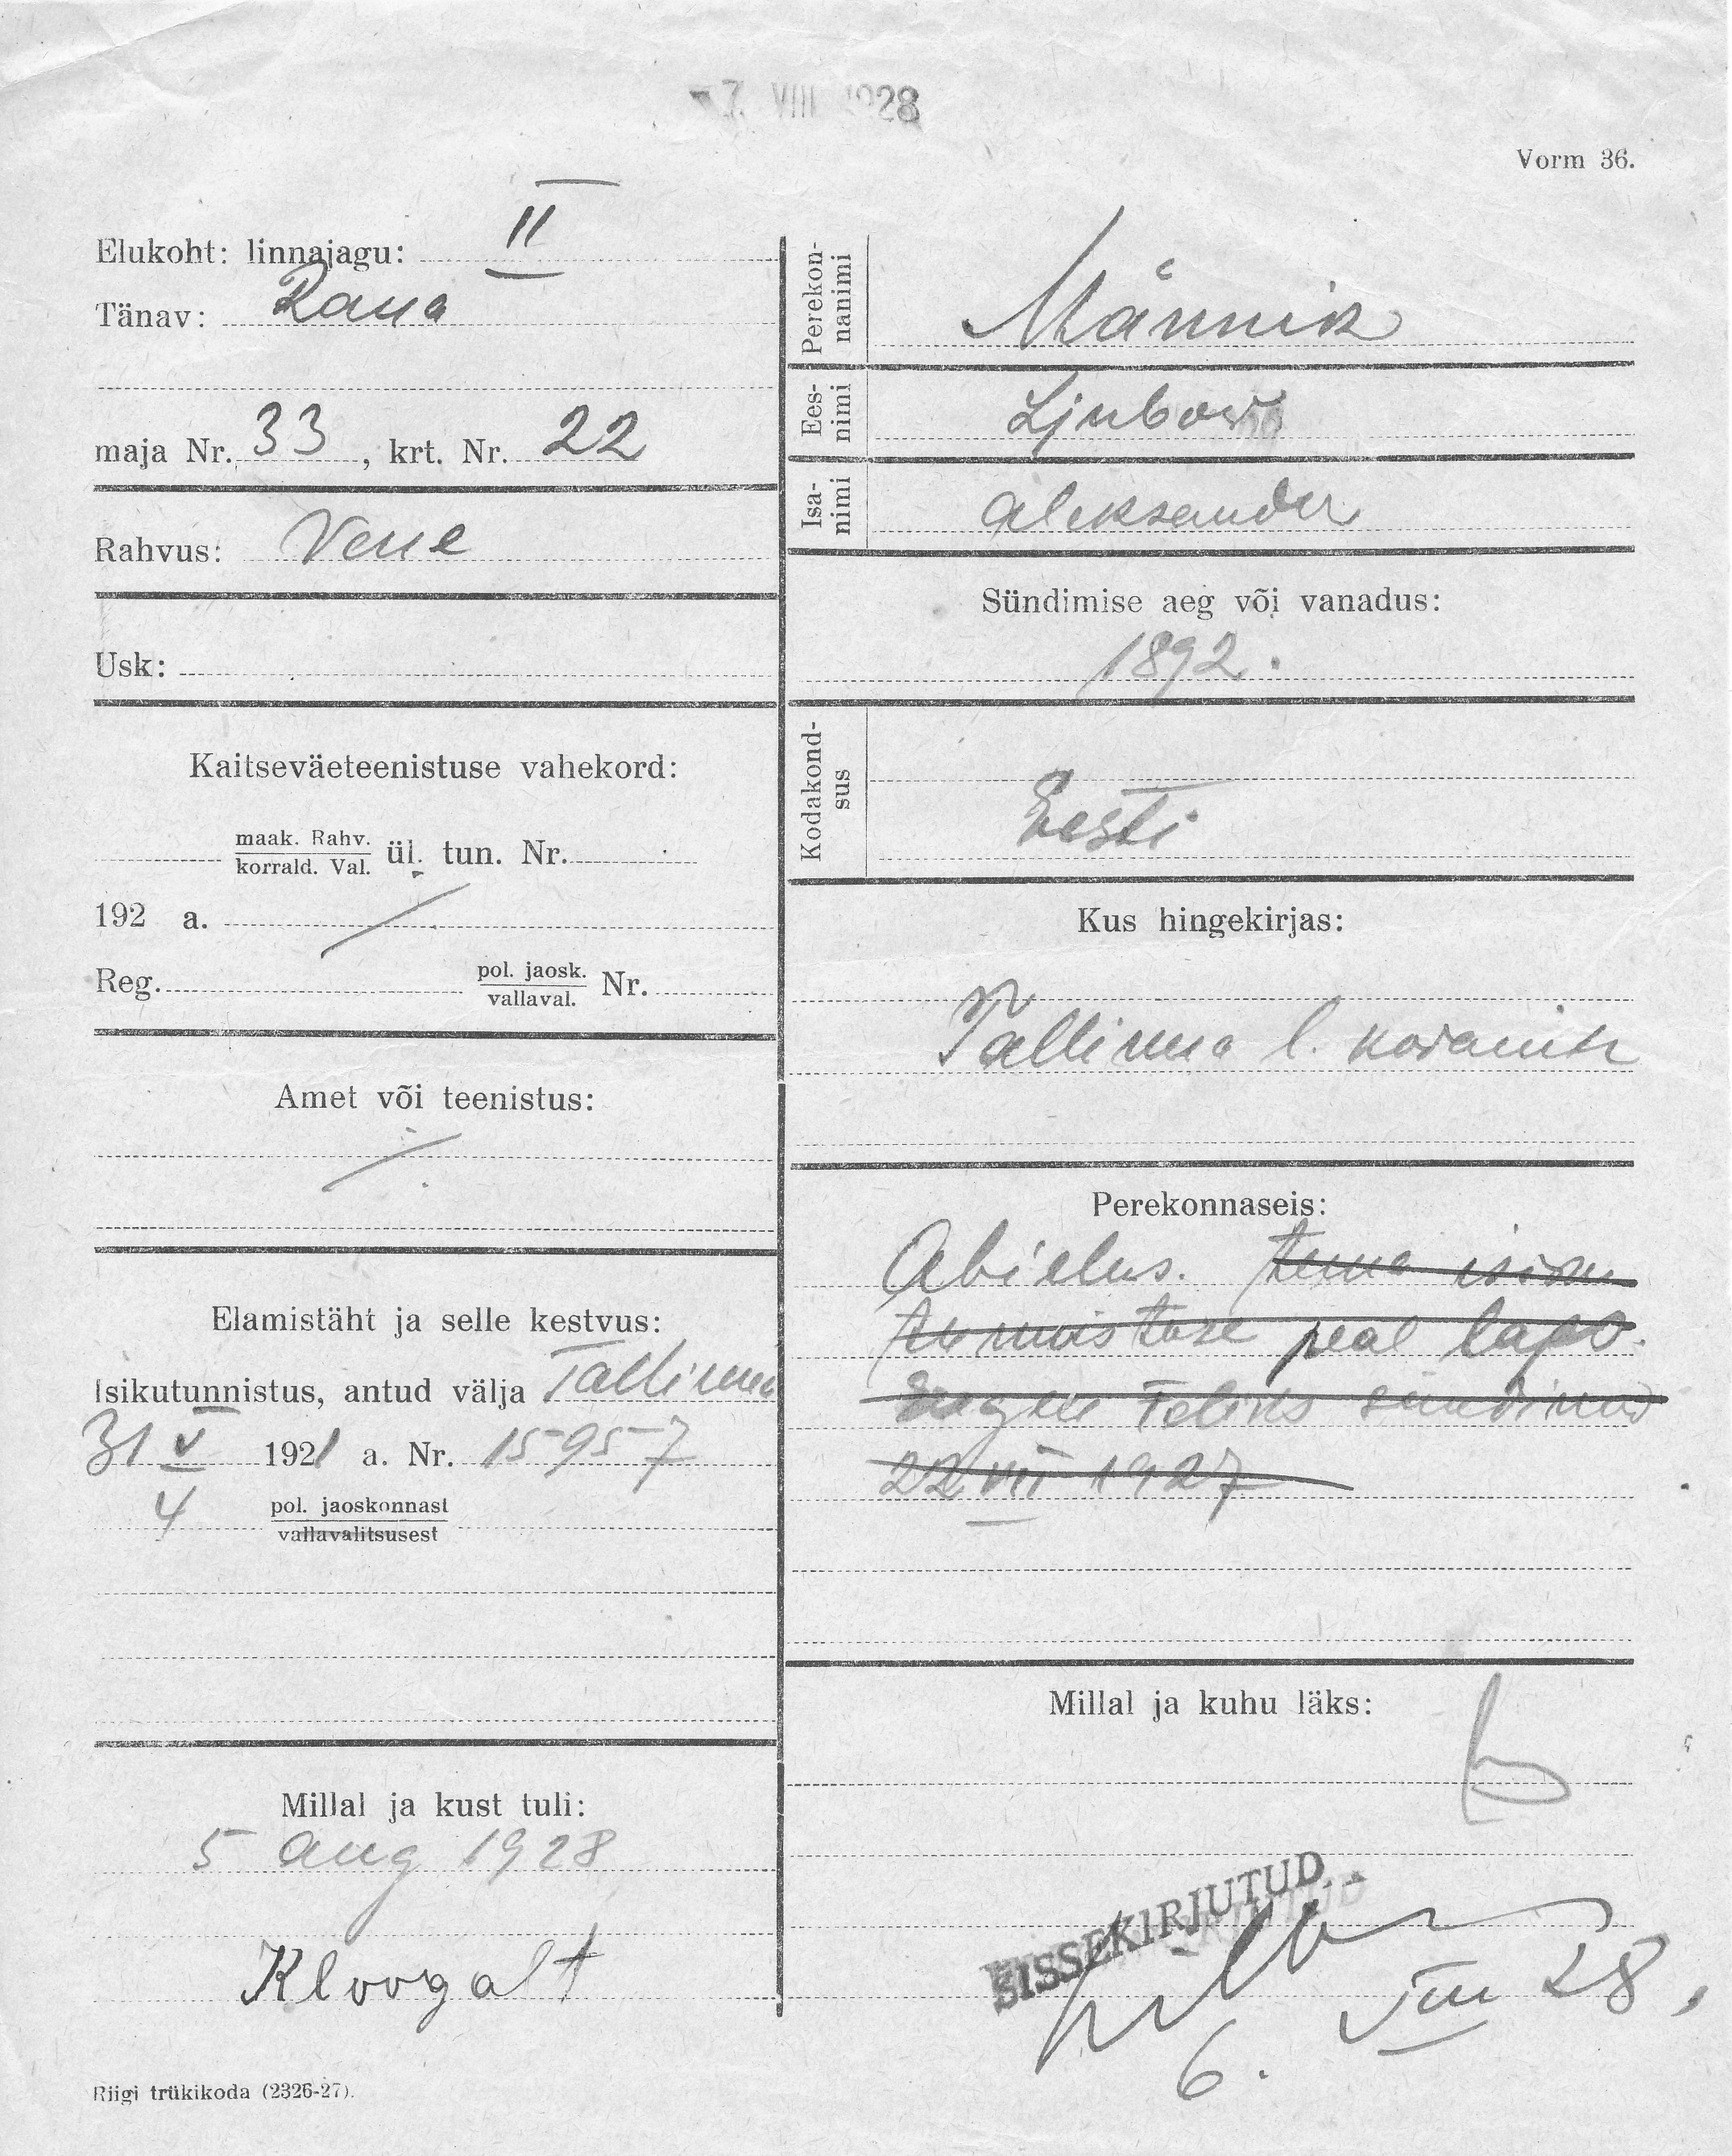 7. VIII 1928
Vorm 36.
Elukoht: linnajagu: II
Tänav: Raua
maja Nr. 33, krt. Nr. 22
Rahvus: Vene
Usk:
Kaitseväeteenistuse vahekord:
maak. Rahv.
korrald. Val. ül. tun. Nr.
192 a.
Reg. pol. jaosk.
vallaval. Nr.
Amet või teenistus:
Elamistäht ja selle kestvus:
Isikutunnistus, antud välja Tallinna
31 V 1921 a. Nr. 15957
4 pol. jaoskonnast
vallavalitsusest
Millal ja kust tuli:
5 aug 1928
Kloogalt
Riigi trükikoda (2326-27).
Perekon-
nanimi
Männik
Ees-
nimi
Ljubow
Isa-
nimi
Aleksander
Sündimise aeg või vanadus:
1892.
Kodakond-
sus
Eesti
Kus hingekirjas:
Tallinna l. kodanik
Perekonnaseis:
Abielus. tema isiku
tunnistuse peal laps
Eugen Feliks sündinud
22 VII 1927
Millal ja kuhu läks:
SISSEKIRJUTUD
6. VIII 28.